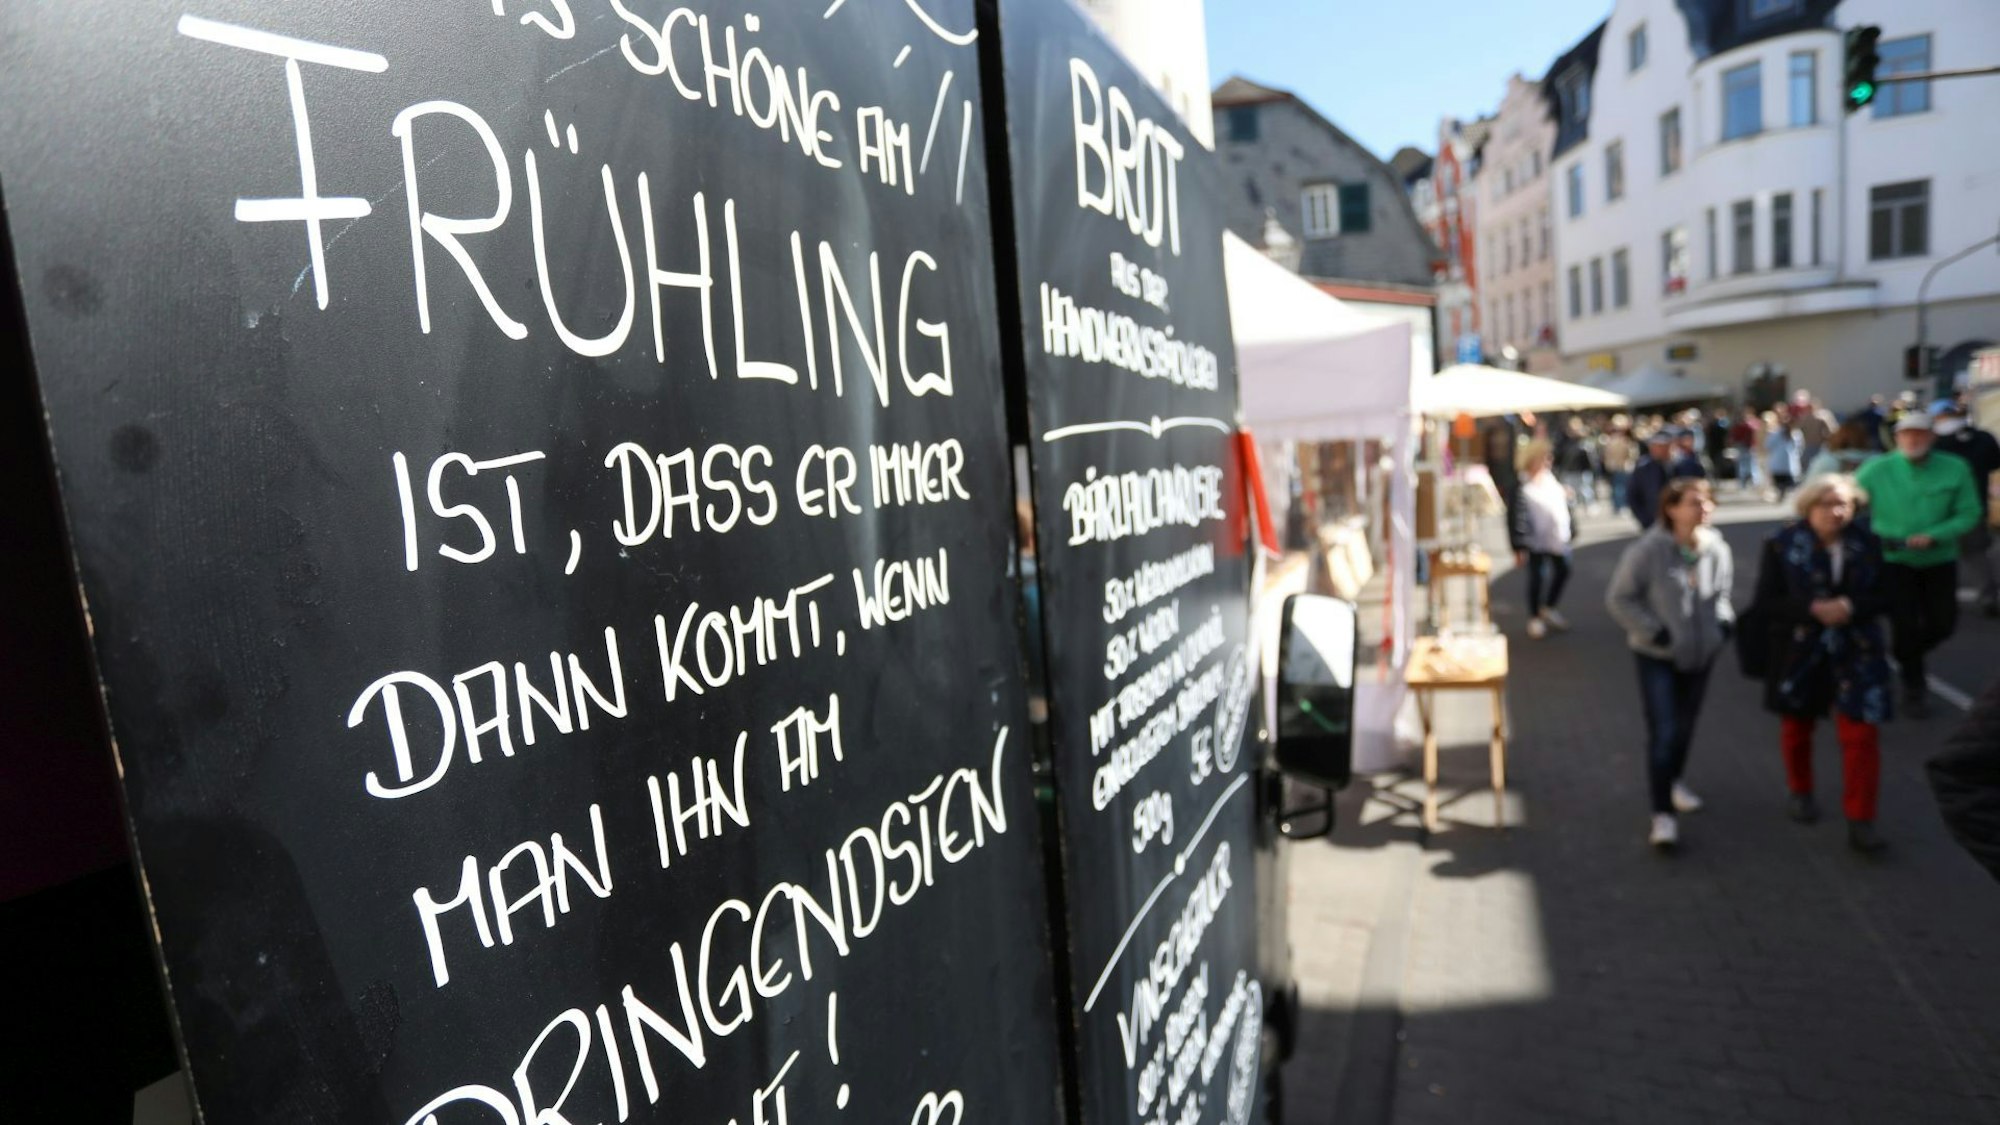 SCHÖNE AM
FRÜHLING
IST, DASS ER IMMER
DANN KOMMT, WENN
MAN IHN AM
DRINGENDSTEN
!
BROT
AUS DER
HANDWERKSBÄCKEREI
BÄRLAUCHKRUSTE
50%
50% WEIZEN
MIT
EINGELEGTEM
5€
500g
VINSCHGAUER